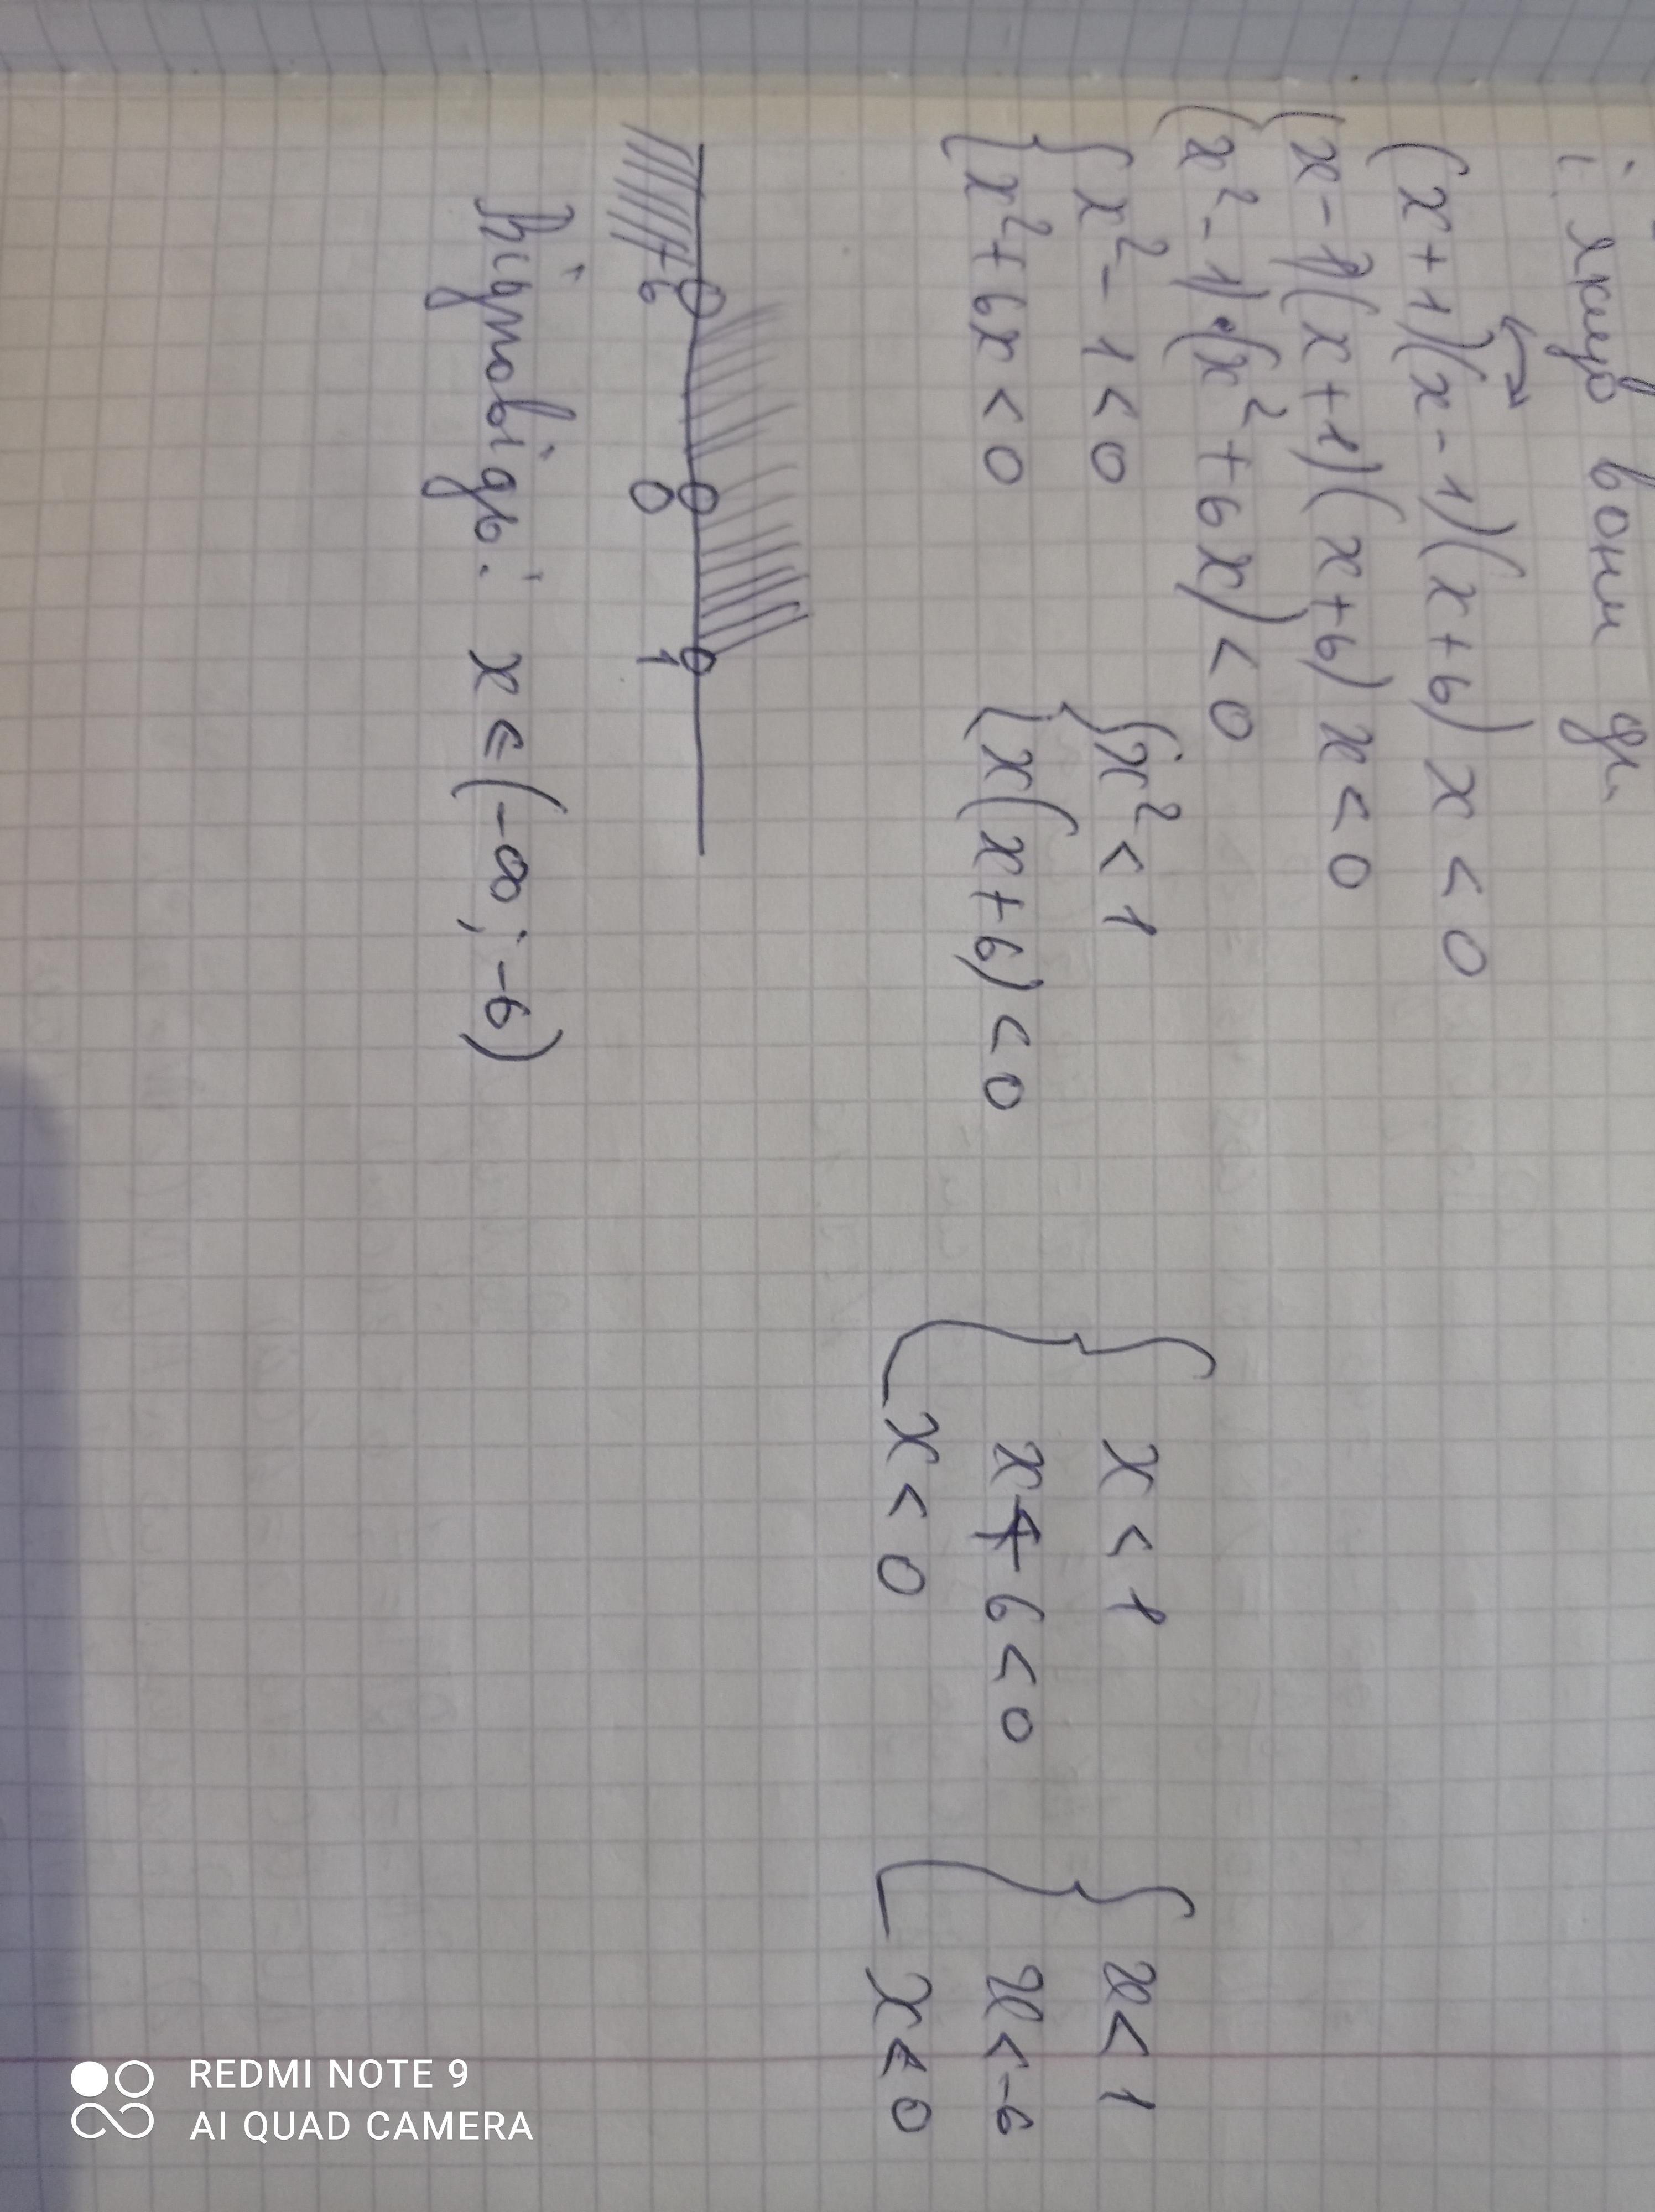 і якщо вони
(x+1)(x-1)(x+6) x < 0
(x-1)(x+1)(x+6) x < 0
(x²-1)·(x²+6x) < 0
{ x² - 1 < 0 { x² < 1 { x < 1 { x < 1
x² + 6x < 0 x(x+6) < 0 x + 6 < 0 x < -6
x < 0 x < 0
-6 0 1
Відповідь: x ∈ (-∞; -6)
REDMI NOTE 9
AI QUAD CAMERA